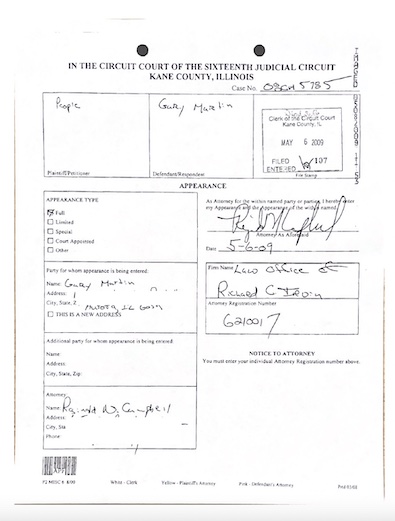 IN THE CIRCUIT COURT OF THE SIXTEENTH JUDICIAL CIRCUIT
KANE COUNTY, ILLINOIS
Case No. 08CM 5785
People
Gary Martin
Clerk of the Circuit Court
Kane County, IL
MAY 6 2009
FILED 107
ENTERED
File Stamp
Plaintiff/Petitioner
Defendant/Respondent
APPEARANCE
APPEARANCE TYPE
Full
Limited
Special
Court Appointed
Other
As Attorney for the within named party or parties, I hereby enter
my Appearance and the Appearance of the within named.
Attorney As Aforesaid
Date 5-6-09
Party for whom appearance is being entered:
Name: Gary Martin
Address:
City, State, Z
THIS IS A NEW ADDRESS
Firm Name Law Office of
Richard C Irvin
Attorney Registration Number
6210017
Additional party for whom appearance is being entered:
Name:
Address:
City, State, Zip:
NOTICE TO ATTORNEY
You must enter your individual Attorney Registration number above.
Attorney:
Name: Reginald N. Campbell
Address:
City, Sta
Phone:
White - Clerk
Yellow - Plaintiff's Attorney
Pink - Defendant's Attorney